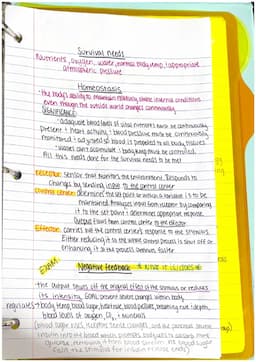 Survival needs
Nutrients, oxygen, water, normal body temp, & appropriate
atmospheric pressure
Homeostasis
the body's ability to maintain relatively stable internal conditions
even though the outside world changes continuously
SIGNIFICANCE:
adequate blood levels of vital nutrients must be continuously
present & heart activity & blood pressure must be constantly
monitored & adjusted so blood is propelled to all body tissues
wastes can't accumulate & body temp must be controlled
All this needs done for the survival needs to be met
Receptor: sensor that monitors the environment. Responds to
changes by sending input to the control center
Control center: determines the set point at which a variable is to be
maintained. Analyzes input from receptor by comparing
it to the set point & determines appropriate response.
Output flows from control center to the effector
Effector: carries out the control center's response to the stimulus.
Either reducing it so the whole control process is shut off or
enhancing it so the process continues faster
EXAM: Negative feedback & what it does
the output shuts off the original effect of the stimulus or reduces
its intensity. Goal: prevent severe changes within body
regulates body temp, blood sugar, heart rate, blood pressure, breathing rate & depth,
blood levels of oxygen, CO₂, & minerals
(blood sugar rises, receptors sense change,